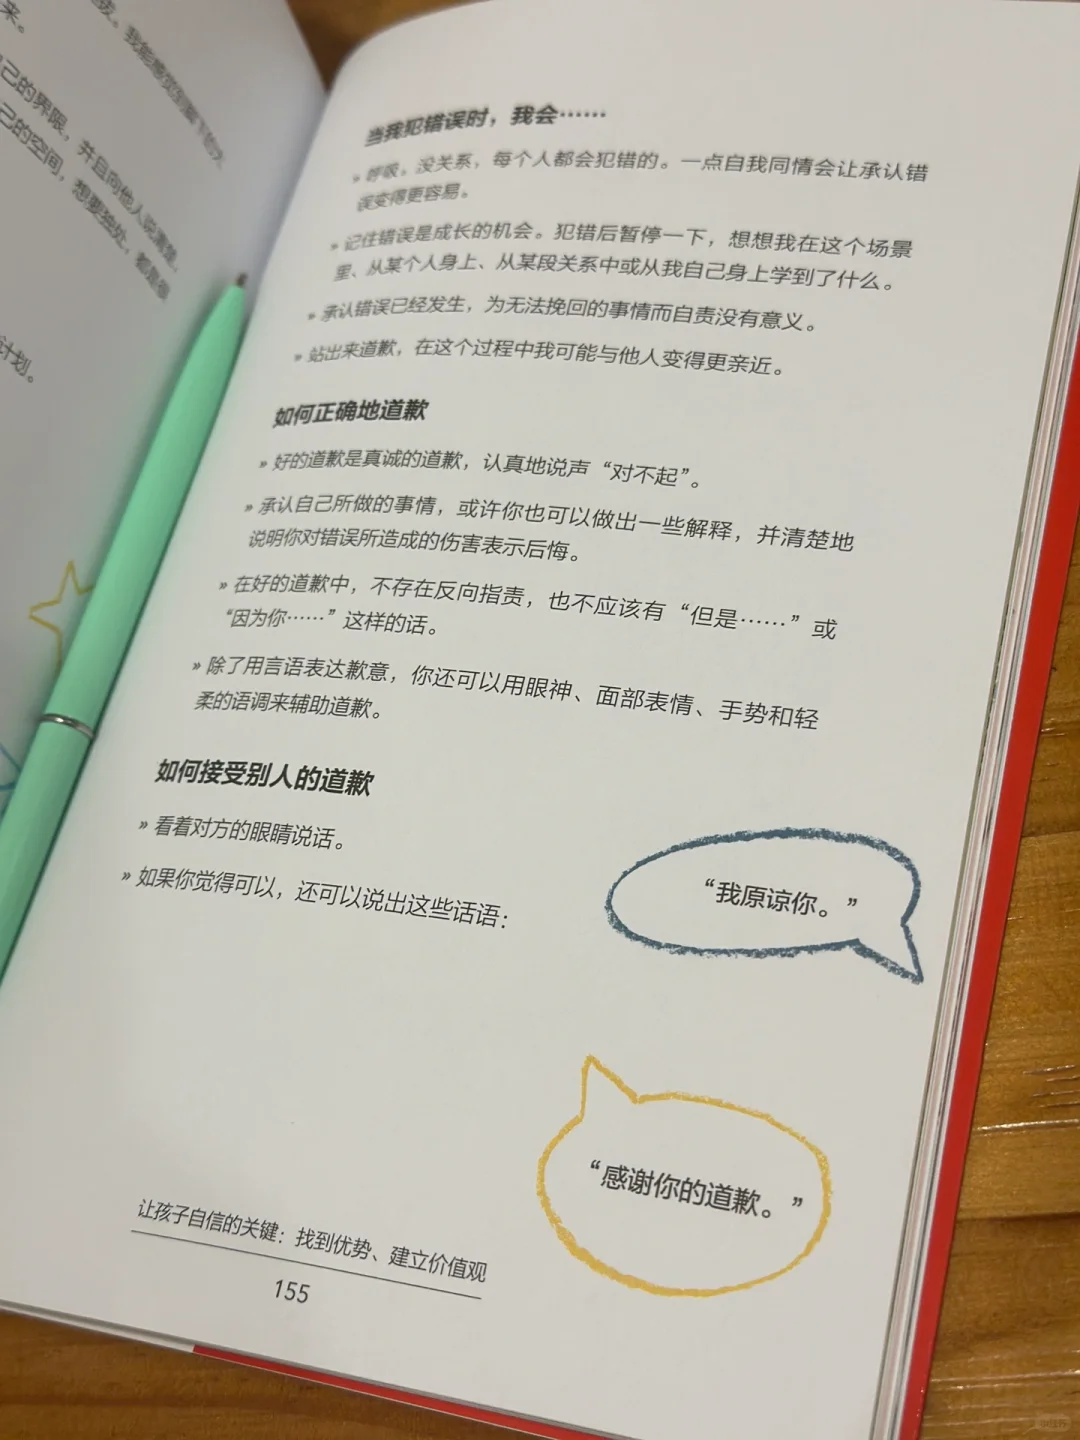 来。
我能感觉到脚下的大
己的界限，并且向他人说清楚，
己的空间，想要独处，都是很
计划。
当我犯错误时，我会……
» 呼吸。没关系，每个人都会犯错的。一点自我同情会让承认错
误变得更容易。
» 记住错误是成长的机会。犯错后暂停一下，想想我在这个场景
里、从某个人身上、从某段关系中或从我自己身上学到了什么。
» 承认错误已经发生，为无法挽回的事情而自责没有意义。
» 站出来道歉，在这个过程中我可能与他人变得更亲近。
如何正确地道歉
» 好的道歉是真诚的道歉，认真地说声“对不起”。
» 承认自己所做的事情，或许你也可以做出一些解释，并清楚地
说明你对错误所造成的伤害表示后悔。
» 在好的道歉中，不存在反向指责，也不应该有“但是……”或
“因为你……”这样的话。
» 除了用言语表达歉意，你还可以用眼神、面部表情、手势和轻
柔的语调来辅助道歉。
如何接受别人的道歉
» 看着对方的眼睛说话。
» 如果你觉得可以，还可以说出这些话语：
“我原谅你。”
“感谢你的道歉。”
让孩子自信的关键：找到优势、建立价值观
155